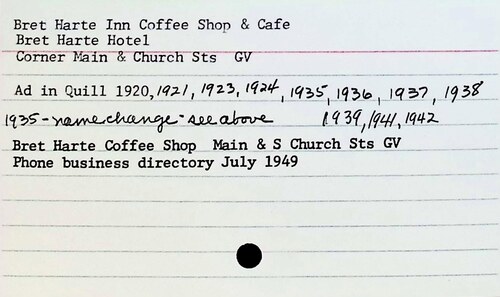 Bret Harte Inn Coffee Shop & Cafe
Bret Harte Hotel
Corner Main & Church Sts GV
Ad in Quill 1920, 1921, 1923, 1924, 1935, 1936, 1937, 1938
1935 - name change - see above 1939, 1941, 1942
Bret Harte Coffee Shop Main & S Church Sts GV
Phone business directory July 1949